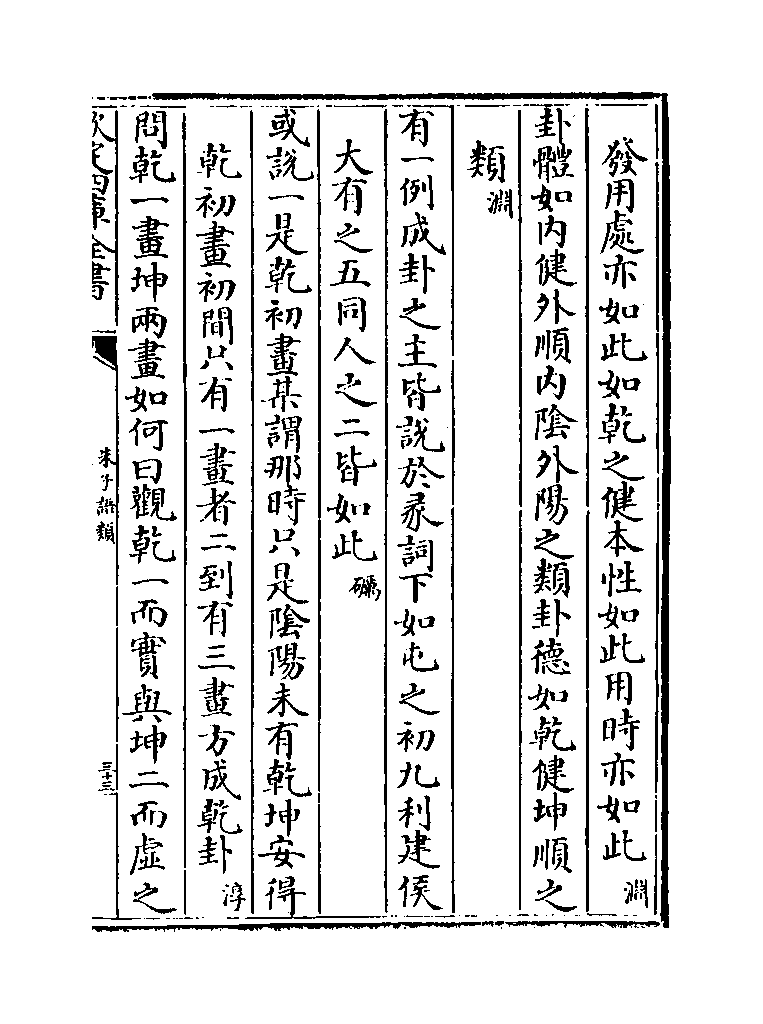 發用處亦如此如乾之健本性如此用時亦如此淵
卦體如内健外順内陰外陽之類卦德如乾健坤順之
類淵
有一例成卦之主皆說於彖詞下如屯之初九利建侯
大有之五同人之二皆如此礪
或說一是乾初畫某謂那時只是陰陽未有乾坤安得
乾初畫初間只有一畫者二到有三畫方成乾卦淳
問乾一畫坤兩畫如何曰觀乾一而實與坤二而虛之
欽定四庫全書
朱子語類
三十三